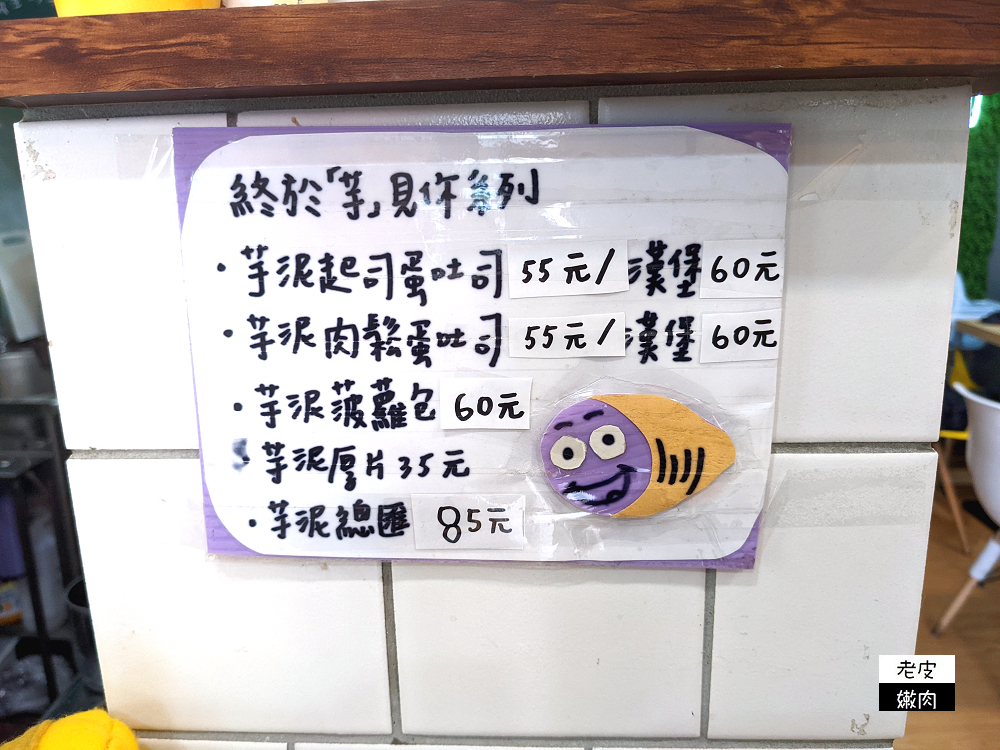 終於「芋」見你系列
·芋泥起司蛋吐司 55元/漢堡60元
·芋泥肉鬆蛋吐司 55元/漢堡 60元
·芋泥菠蘿包 60元
·芋泥厚片35元
·芋泥總匯 85元
老皮
嫩肉